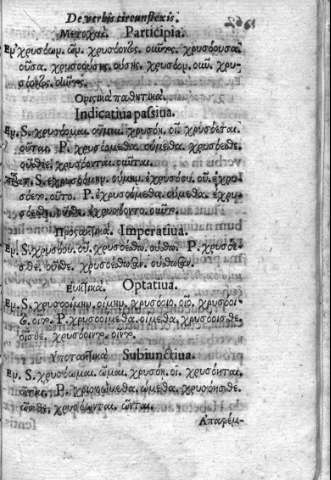 De verbis circunflexis.
Μετοχαὶ. Participia.
Ενεσ. χρυσόων. ῶν. χρυσόοντος. οῦντος. χρυσόουσα.
οῦσα. χρυσοούσης. ούσης. χρυσόον. οῦν. χρυ-
σόοντος. οῦντος.
Ὁριστικὰ παθητικά.
Indicatiua passiua.
S. χρυσόομαι. οῦμαι. χρυσόῃ. οῖ. χρυσόεται.
οῦται. P. χρυσοόμεθα. ούμεθα. χρυσόεσθε.
οῦσθε. χρυσόονται. οῦνται.
S. ἐχρυσοόμην. ούμην. ἐχρυσόου. οῦ. ἐχρυ-
σόετο. οῦτο. P. ἐχρυσοόμεθα. ούμεθα. ἐχρυ-
σόεσθε. οῦσθε. ἐχρυσόοντο. οῦντο.
Προστακτικὰ. Imperatiua.
S. χρυσόου. οῦ. χρυσοέσθω. ούσθω. P. χρυσόε-
σθε. οῦσθε. χρυσοέσθωσαν. ούσθωσαν.
Εὐκτικὰ. Optatiua.
S. χρυσοοίμην. οίμην. χρυσόοιο. οῖο. χρυσόοι-
το. οῖτο. P. χρυσοοίμεθα. οίμεθα. χρυσόοισθε.
οῖσθε. χρυσόοιντο. οῖντο.
Υποτακτικὰ Subiunctiua.
S. χρυσόωμαι. ῶμαι. χρυσόῃ. οῖ. χρυσόηται.
ῶται. P. χρυσοώμεθα. ώμεθα. χρυσόησθε.
ῶσθε. χρυσόωνται. ῶνται.
Ἀπαρέμ-